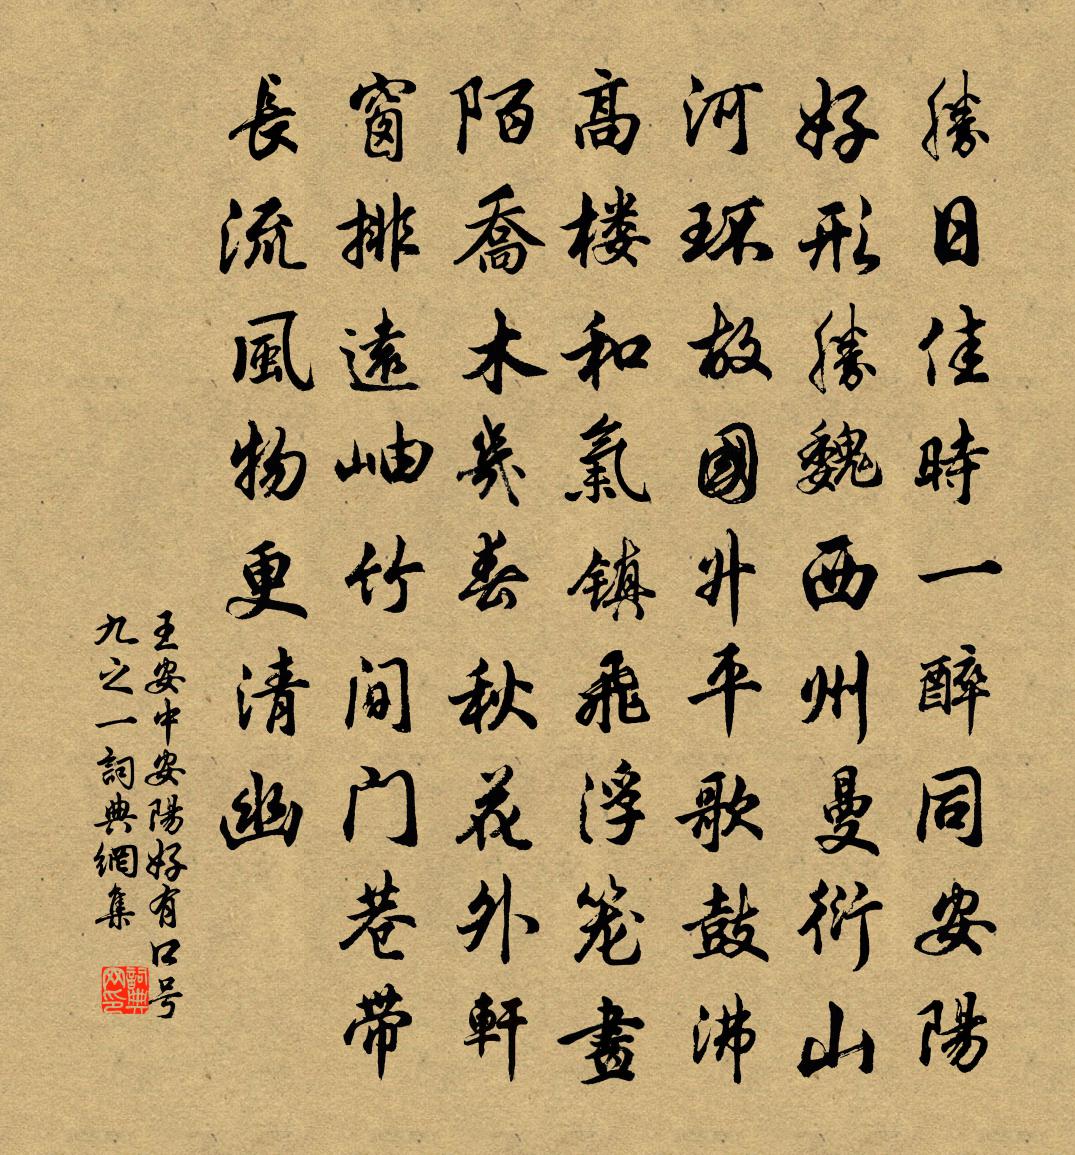 勝日佳時一醉同安陽
好形勝魏西州曼衍山
河环故國升平歌鼓沸
高楼和氣镇飛浮笼畫
陌喬木幾春秋花外軒
窗排遠岫竹间门巷带
長流風物更清幽
王安中安陽好有口号
九之一詞典網集
詞典网印